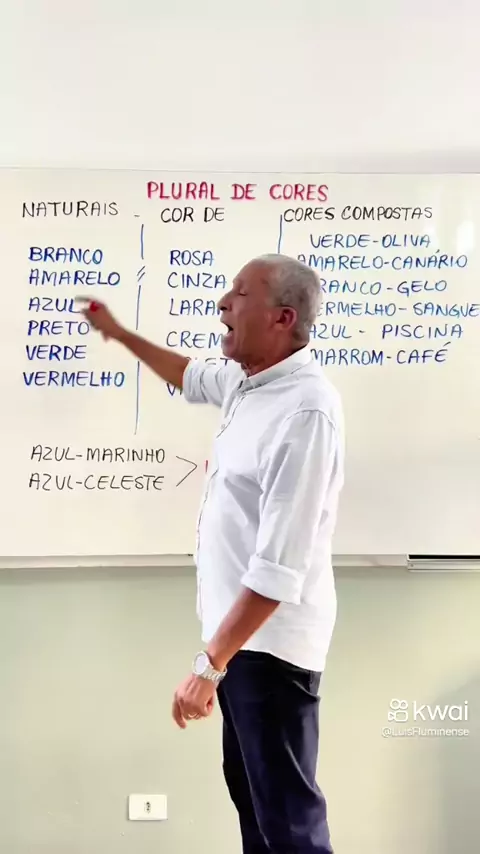 PLURAL DE CORES
NATURAIS - COR DE CORES COMPOSTAS
BRANCO
AMARELO
AZUL
PRETO
VERDE
VERMELHO
ROSA
CINZA
LARA
CREM
VERDE-OLIVA
AMARELO-CANÁRIO
RANCO-GELO
ERMELHO-SANGUE
AZUL - PISCINA
MARROM-CAFÉ
AZUL-MARINHO
AZUL-CELESTE
kwai
@LuisFluminense